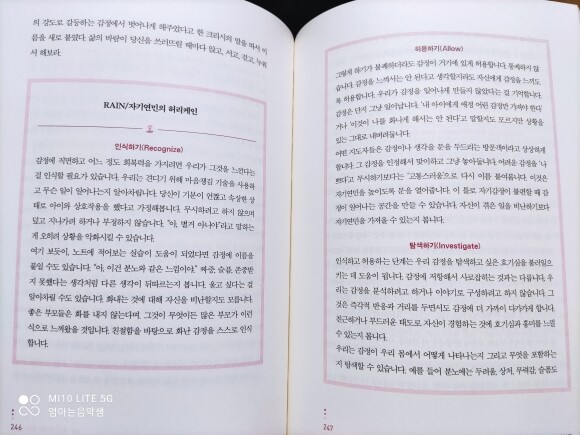 의 강도로 갈등하는 감정에서 벗어나게 해주었다고 한 크리시의 말을 따서 이
름을 새로 붙였다. 삶의 바람이 당신을 쓰러뜨릴 때마다 앉고, 서고, 걷고, 누워
서 해보라.
RAIN/자기연민의 허리케인
인식하기(Recognize)
감정에 직면하고 어느 정도 회복력을 가지려면 우리가 그것을 느낀다는
걸 인식할 필요가 있습니다. 우리는 견디기 위해 마음챙김 기술을 사용하
고 무슨 일이 일어나는지 알아차립니다. 당신이 기분이 언짢고 속상한 상
태로 아이와 상호작용을 했다고 가정해봅니다. 무시하려고 하지 않으며
밀고 지나가려 하거나 부정하지 않습니다. "아, 별거 아니야"라고 말하는
게 오히려 상황을 악화시킬 수 있습니다.
여기 보듯이, 노트에 적어보는 실습이 도움이 되었다면 감정에 이름을
붙일 수도 있습니다. "아, 이건 분노와 같은 느낌이야." 짜증, 슬픔, 존중받
지 못했다는 생각처럼 다른 생각이 뒤따르는지 봅니다. 울고 싶다는 걸
알아차릴 수도 있습니다. 화내는 것에 대해 자신을 비난할지도 모릅니다.
좋은 부모들은 화를 내지 않는다며, 그것이 무엇이든 많은 부모가 이런
식으로 느껴왔을 것입니다. 친절함을 바탕으로 화난 감정을 스스로 인식
합니다.
246
MI10 LITE 5G
엄마는음악생
허용하기(Allow)
그렇게 하기가 불쾌하더라도 감정이 거기에 있게 허용합니다. 통제하지 않
습니다. 감정을 느껴서는 안 된다고 생각할지라도 자신에게 감정을 느끼도
록 허용합니다. 우리가 감정을 일어나게 만들지 않았다는 걸 기억합니다.
감정은 단지 그냥 일어납니다. '내 아이에게 애정 어린 감정만 가져야 한다'
거나 '이것이 나를 화나게 해서는 안 된다'고 말할지도 모르지만 상황을
있는 그대로 내버려둡니다.
어떤 지도자들은 감정이나 생각을 문을 두드리는 방문객이라고 상상하게
합니다. 그 감정을 인정해서 맞이하고 그냥 놓아둡니다. 어려운 감정을 '나
쁘다'고 무시하기보다는 '고통스러움'으로 다시 이름 붙여봅니다. 이것은
자기연민을 높이도록 문을 열어줍니다. 이 틀로 자기감정이 불편할 때 감
정이 일어나는 공간을 만들 수 있습니다. 자신이 겪은 일을 비난하기보다
자기연민을 가져올 수 있는지 봅니다.
탐색하기(Investigate)
인식하고 허용하는 단계는 우리 감정을 탐색하고 싶은 호기심을 불러일으
키는 데 도움이 됩니다. 감정에 저항해서 사로잡히는 것과는 다릅니다. 우
리는 감정을 분석하려고 하거나 이야기로 구성하려고 하지 않습니다. 그
것은 즉각적 반응과 거리를 두면서도 감정에 더 가까이 다가가게 합니다.
친근하거나 부드러운 태도로 자신이 경험하는 것에 호기심과 흥미를 느낄
수 있는지 봅니다.
우리는 감정이 우리 몸에서 어떻게 나타나는지 그리고 무엇을 포함하는
지 탐색할 수 있습니다. 예를 들어 분노에는 두려움, 상처, 무력감, 슬픔도
247